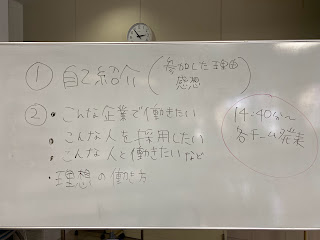 ① 自己紹介 (参加した理由
感想
② ・こんな企業で働きたい
・こんな人を採用したい
・こんな人と働きたいなど
・理想の働き方
14:40分〜
各チーム発表